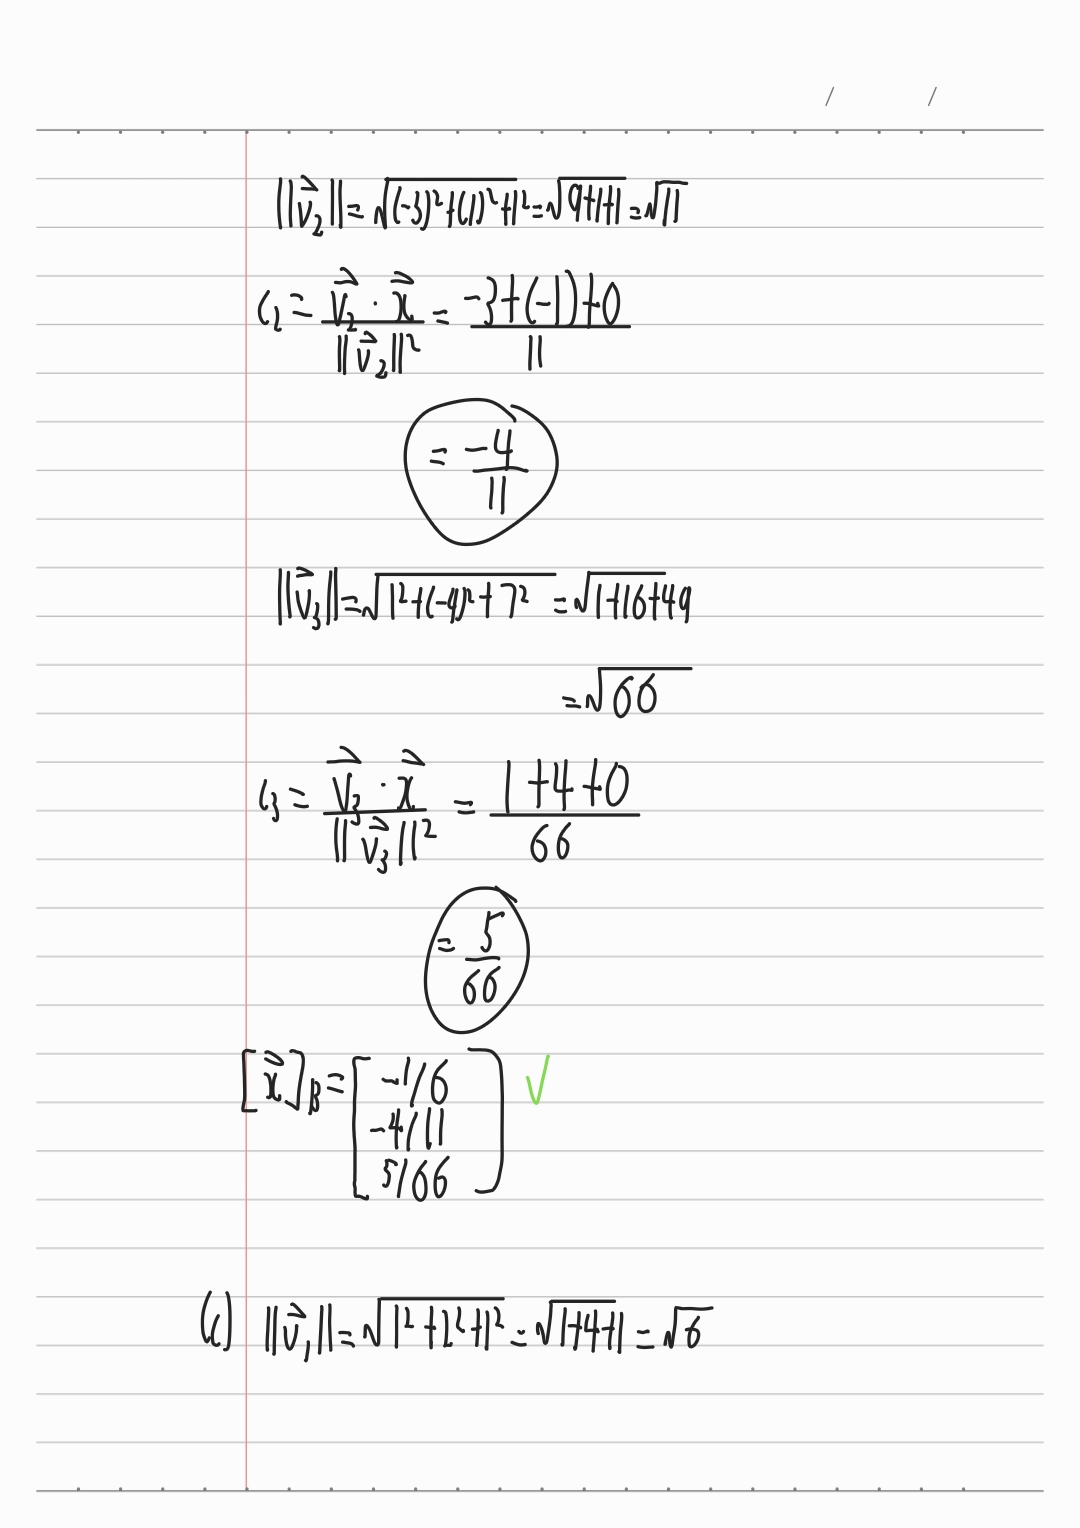 / /
||v⃗₂|| = √((-3)² + (1)² + 1²) = √(9+1+1) = √11
c₂ = (v⃗₂ · x⃗) / ||v⃗₂||² = (-3 + (-1) + 0) / 11
= -4/11
||v⃗₃|| = √(1² + (-4)² + 7²) = √(1+16+49)
= √66
c₃ = (v⃗₃ · x⃗) / ||v⃗₃||² = (1 + 4 + 0) / 66
= 5/66
[x⃗]_B = [-1/6
-4/11
5/66] ✓
(c) ||v⃗₁|| = √(1² + 2² + 1²) = √(1+4+1) = √6